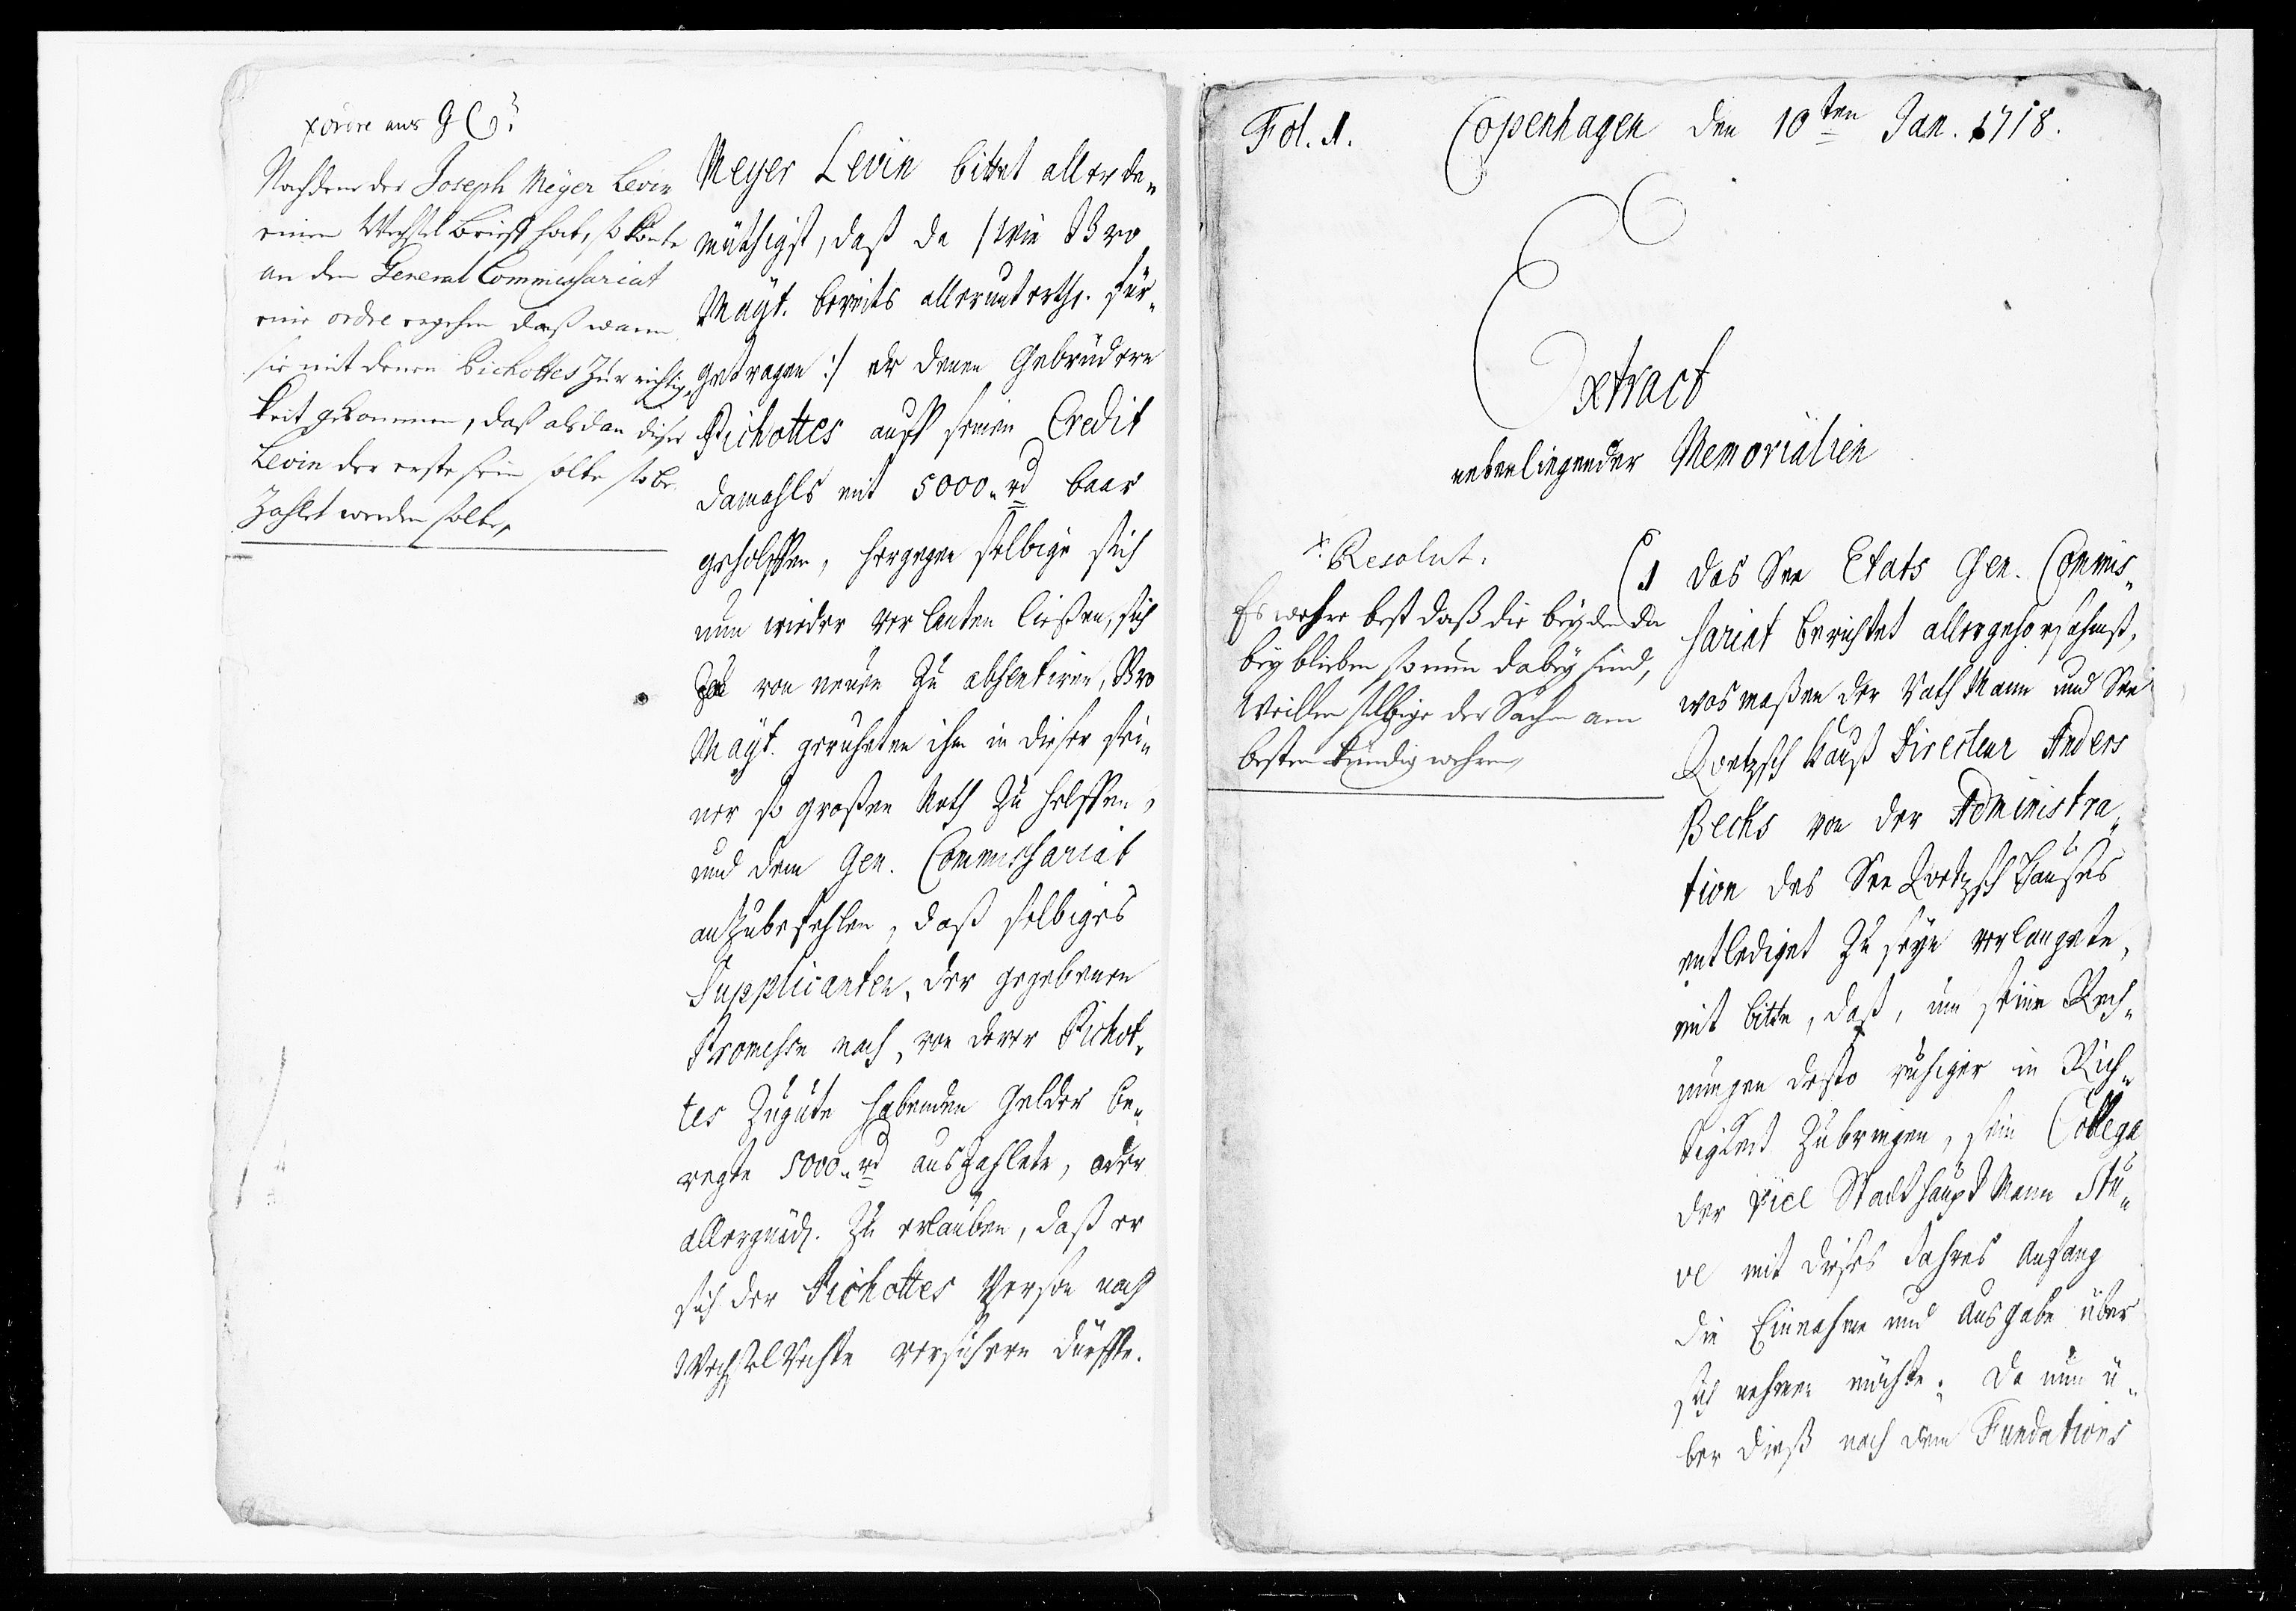 x ordre ans G C:
Nachdem der Joseph Meyer Levin
einen Wechsel Brieff hat, so könte
an den General Commissariat
eine ordre ergehen daß wann
sie mit denen Pichottes zur richtig„
keit gekommen, daß alsdan dieser
Levin der erste sein solte so be„
zahlet werden solte,
Meyer Levin bittet allerde„
müthigst, daß da /: wie Ewro
Mayt. bereits allerunterthg. für„
getragen :/ er denen Gebrüdern
Pichottes auff seinen Credit
damahls mit 5000 „ rd baar
geholffen, hergegen selbige sich
nun wieder verlauten ließen, sich
von neuen zu absentiren, Ewro
Mayt. geruheten ihm in dieser sei„
ner so großen Noth zu helffen,
und dem Gen. Commissariat
anzubefehlen, daß selbiges
Supplicanten, der gegebenen
Promesse nach, von derer Pichot„
tes zugute habenden Gelder be„
regte 5000 „ rd auszahlete, oder
allergnäd. zu erlauben, daß er
sich der Pichottes Person nach
Wechsel Rechte versichern dürffte.
Fol. 1. Copenhagen den 10ten Jan. 1718.
Extract
nebenliegender Memorialien
x. Resolut.
Es wehre best daß die beyden da
bey blieben so nun dabey sind,
Weillen selbige der Sachen am
besten kündig wehren,
1 Das See Etats Gen. Commis„
sariat berichtet allergehorsahmst,
was maßen der Rath Mann und See
Qvetzsch Hauß Directeur Anders
Becks von der Administra„
tion des See Qvetzsch Hauses
entlediget zu seyn verlangete,
mit bitte, daß, um seine Rech„
nungen desto ruhiger in Rich„
tigkeit zubringen, sein Collega
der vice Stadt Haupt Mann Stu„
ve mit dieses Jahres Anfang
die Einnahme und Ausgabe über
sich nehmen möchte. Da nun ü„
ber dieß nach dem Fundations